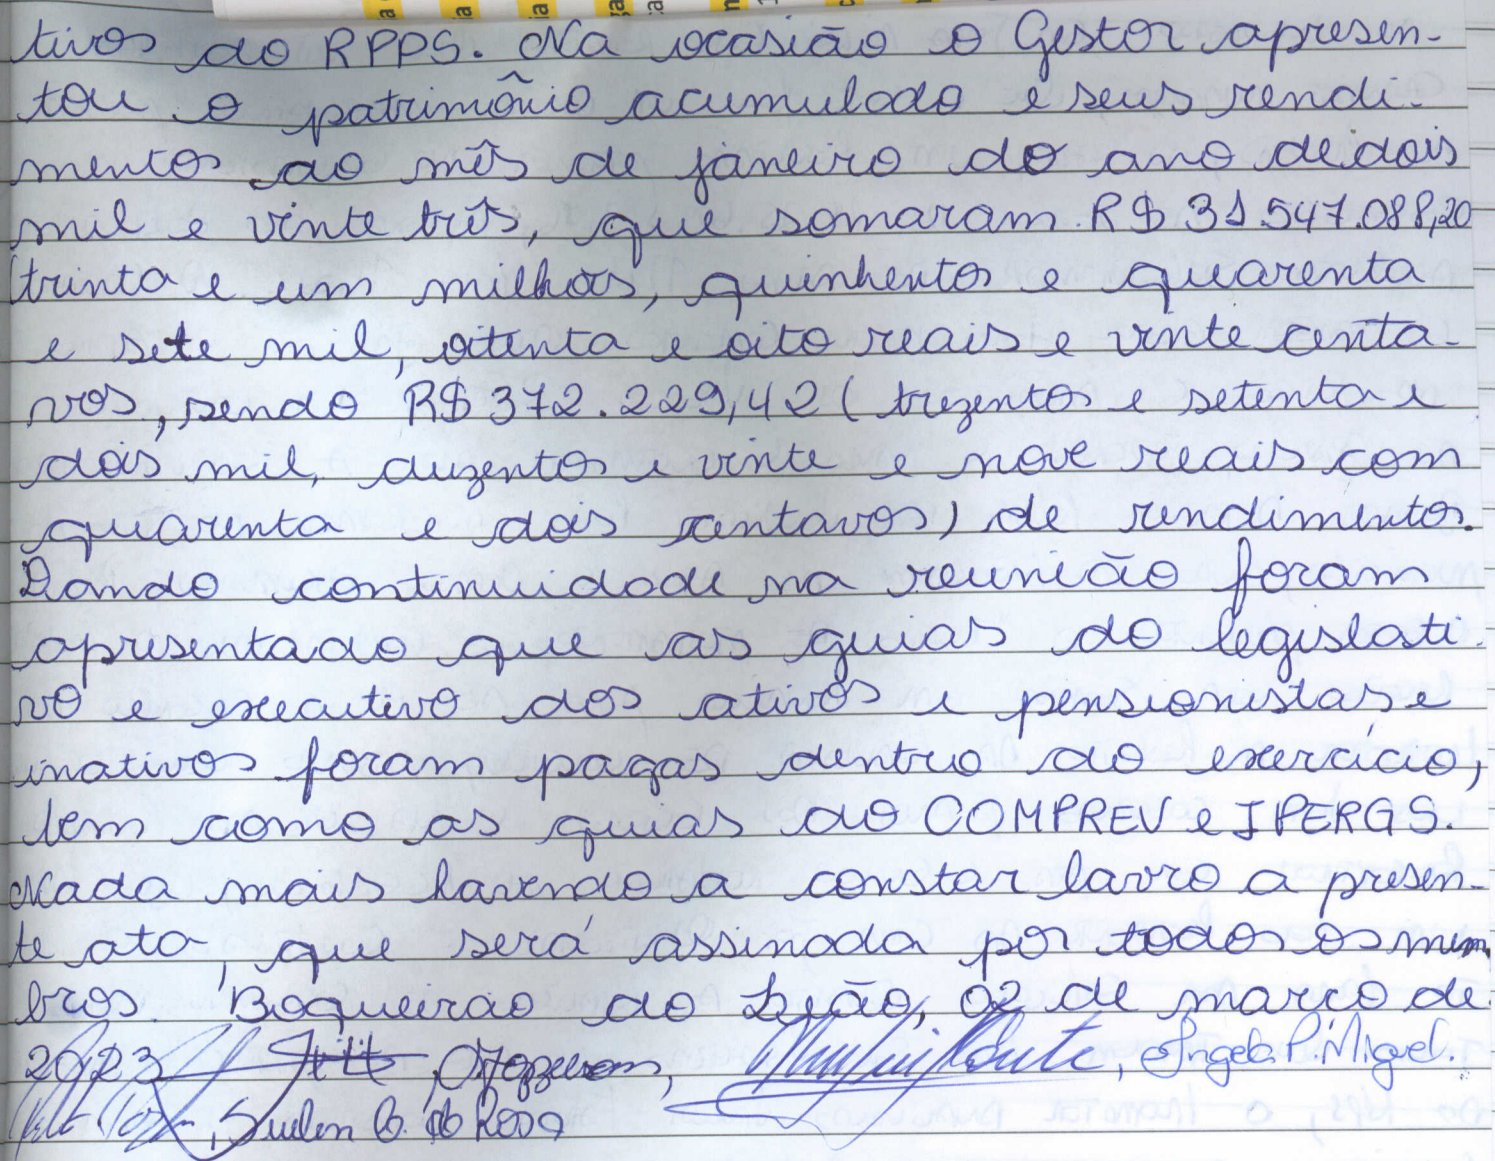 tivos do RPPS. Na ocasião o Gestor apresen-
tou o patrimônio acumulado e seus rendi-
mentos do mês de janeiro do ano de dois
mil e vinte três, que somaram R$ 31.547.088,20
(trinta e um milhões, quinhentos e quarenta
e sete mil, oitenta e oito reais e vinte centa-
vos, sendo R$ 372.229,42 (trezentos e setenta e
dois mil, duzentos e vinte e nove reais com
quarenta e dois centavos) de rendimentos.
Dando continuidade na reunião foram
apresentado que as guias do legislati-
vo e executivo dos ativos e pensionistas e
inativos foram pagas dentro do exercício,
bem como as guias do COMPREV e IPERGS.
Nada mais havendo a constar lavro a presen-
te ata, que será assinada por todos os mem
bros. Boqueirão do Leão, 02 de março de
2023 Angela P. Miguel.
Suelen B. da Rosa